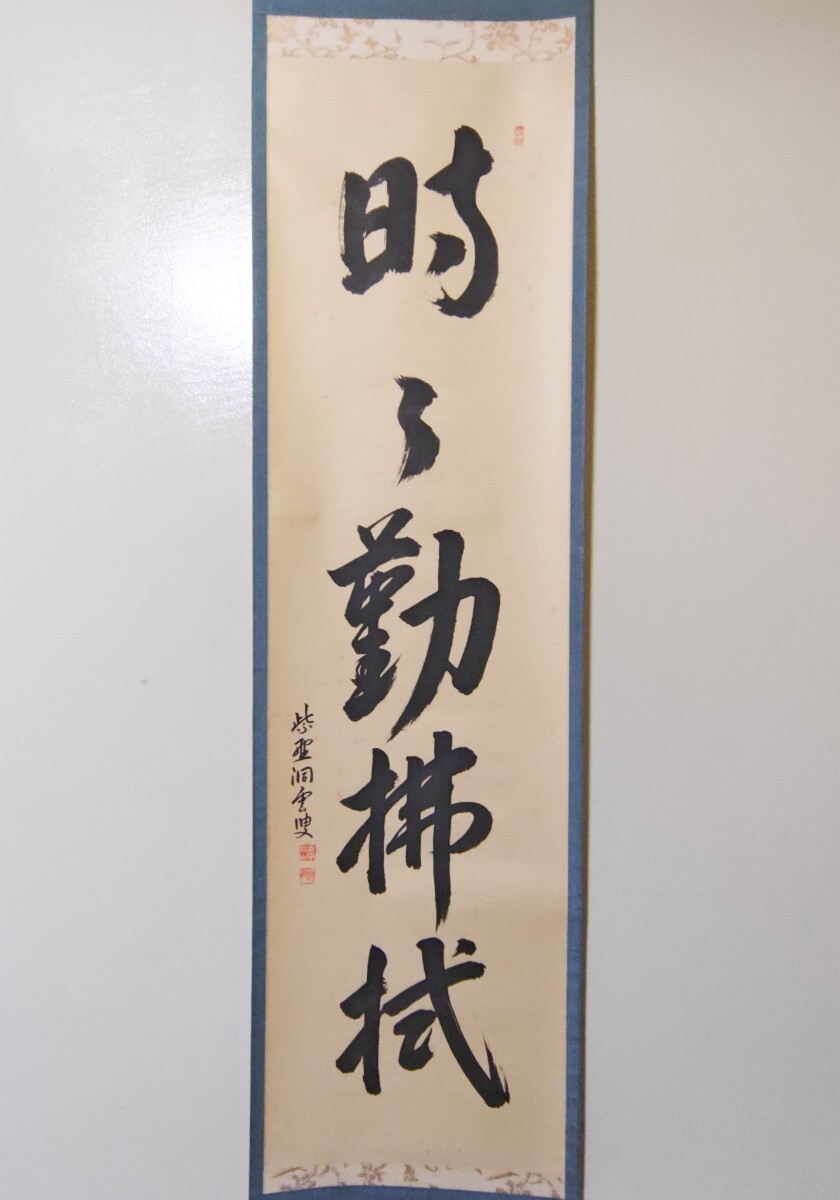 時々勤拂拭
紫野洞雲叟